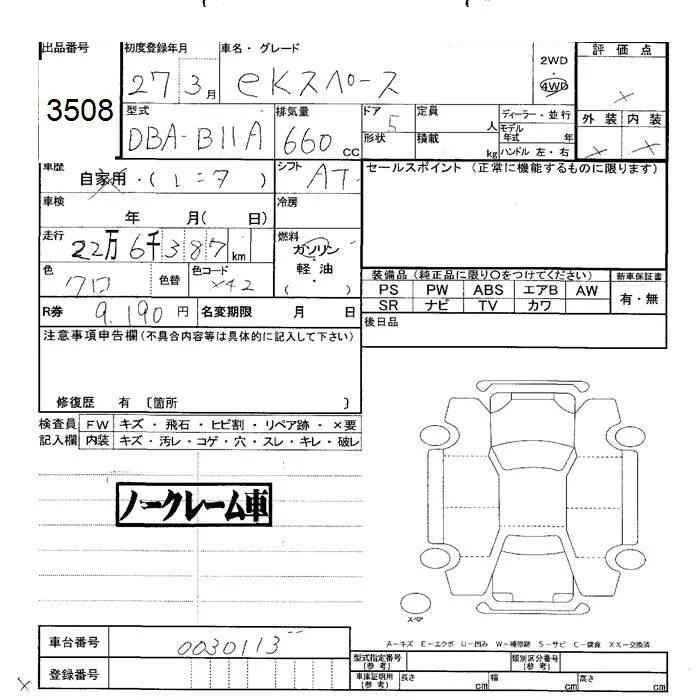 出品番号 初度登録年月 車名・グレード 評価点
3508 27 3月 eKスペース 2WD 4WD ×
型式 排気量 ドア 定員 ディーラー・並行 外装 内装
DBA-B11A 660cc 5 人 モデル年式 年 × ×
形状 積載 kg ハンドル 左・右
車歴 自家用・( レニタ ) シフト AT セールスポイント (正常に機能するものに限ります)
車検 年 月( 日) 冷房
走行 22万6千387km 燃料 ガソリン 軽油・( )
色 クロ 色替 色コード X42
装備品(純正品に限り○をつけてください) 新車保証書
PS PW ABS エアB AW 有・無
SR ナビ TV カワ
R券 9.190円 名変期限 月 日 後日品
注意事項申告欄(不具合内容等は具体的に記入して下さい)
修復歴 有 〔箇所 〕
検査員 FW キズ・飛石・ヒビ割・リペア跡・×要
記入欄 内装 キズ・汚レ・コゲ・穴・スレ・キレ・破レ
ノークレーム車
スペア
A-キズ E-エクボ U-凹み W-補修跡 S-サビ C-腐食 XX-交換済
車台番号 0030113
登録番号
型式指定番号(参考) 類別区分番号(参考)
車庫証明用(参考) 長さ cm 幅 cm 高さ cm
×